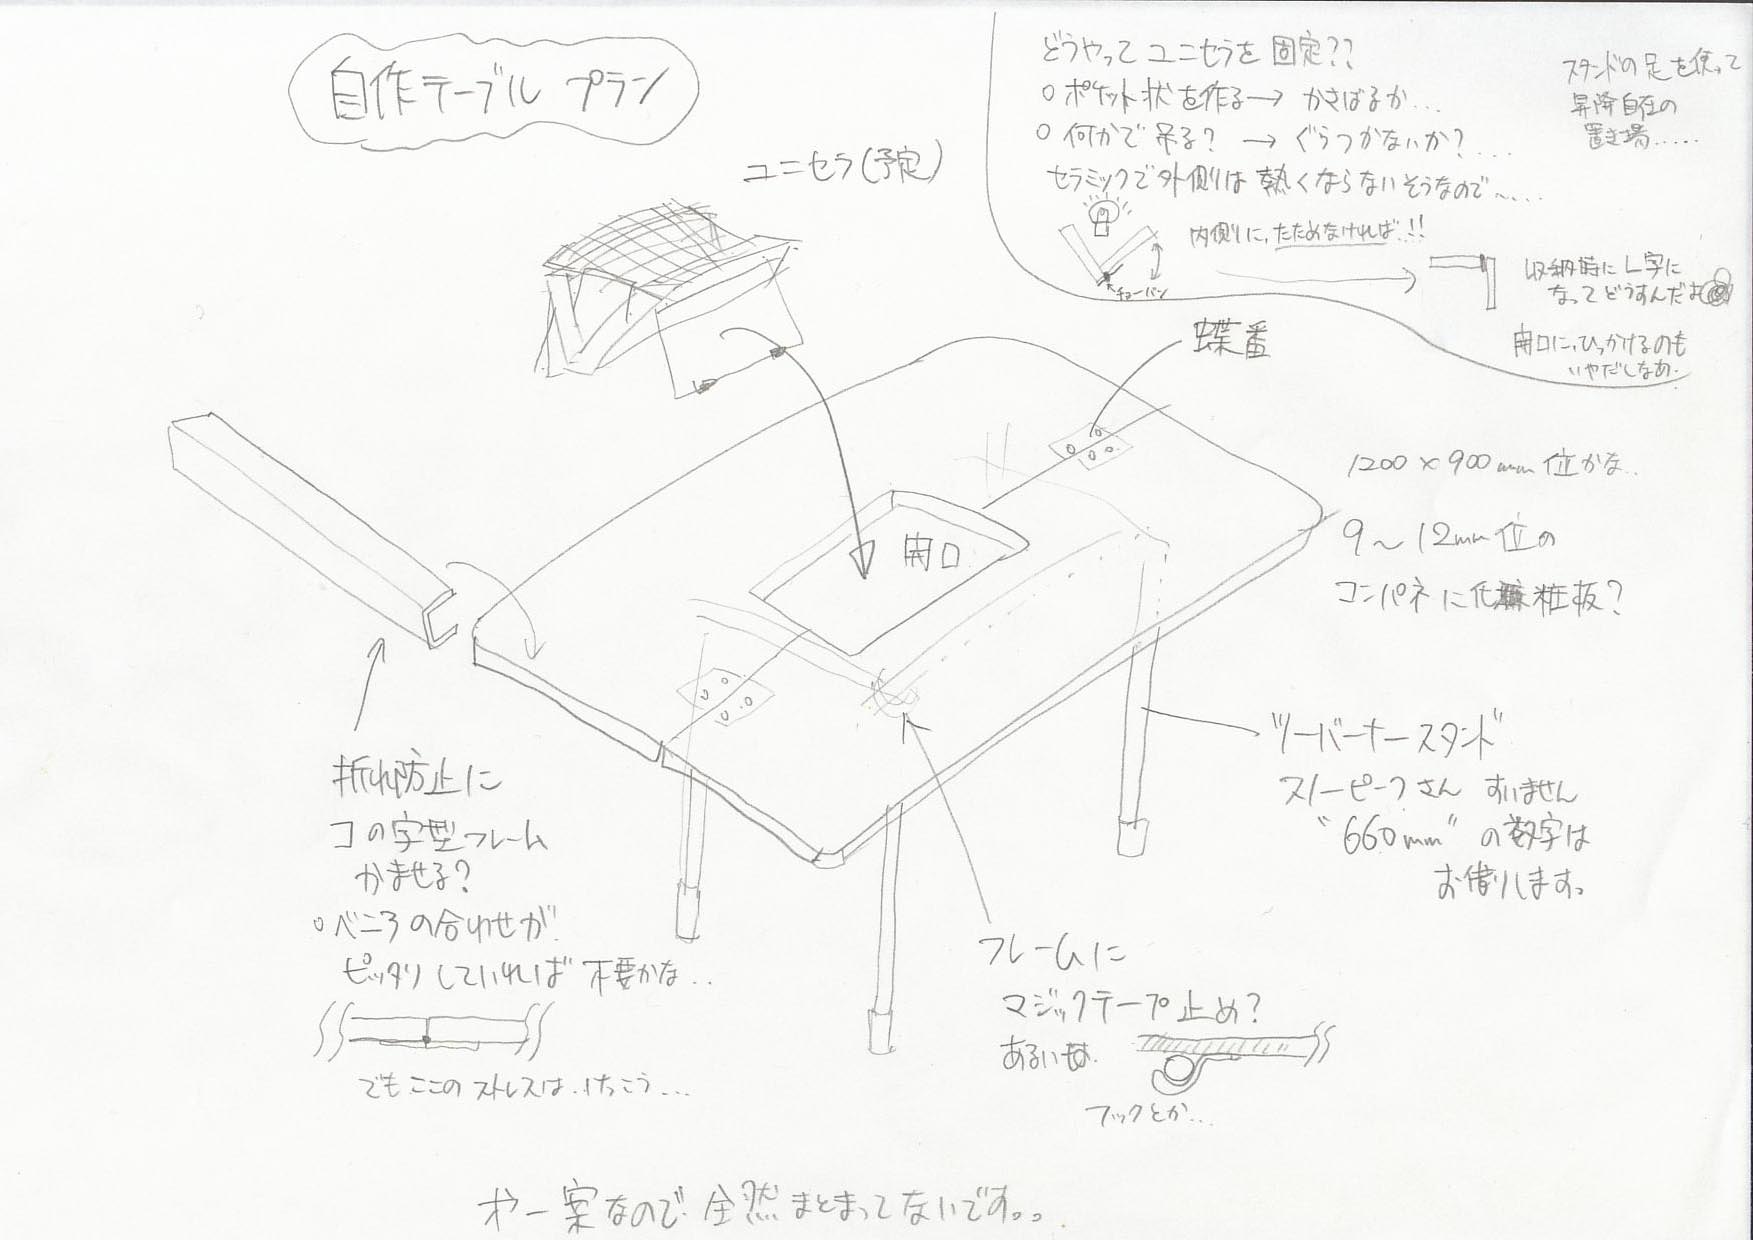 自作テーブル プラン
ユニセラ(予定)
どうやって ユニセラを 固定??
○ ポケット状を作る→ かさばるか...
○ 何かで 吊る? → ぐらつかないか?...
セラミックで外側は 熱くならないそうなので〜....
内側に、たためなければ..!!
チョーバン
収納時にL字に
なってどうすんだよ
開口に、ひっかけるのも
いやだしなあ.
スタンドの足を使って
昇降自在の
置き場.....
蝶番
開口
1200×900mm 位かな..
9〜12mm位の
コンパネに化粧板?
"ツーバーナースタンド"
スノーピークさん すいません
"660mm"の数字は
お借りします。
折れ防止に
コの字型フレーム
かませる?
○ベニヤの合わせが
ピッタリしていれば 不要かな..
でもここのストレスは.けっこう...
フレームに
マジックテープ止め?
あるいは.
フックとか...
才一案なので 全然まとまってないです。。